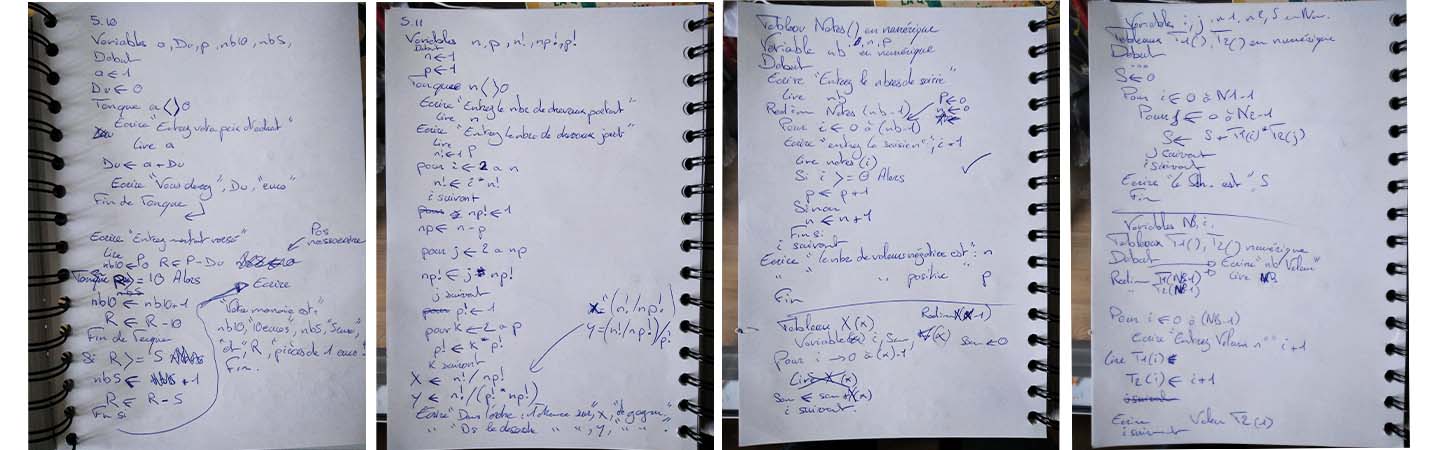 5.10
Variables a, Du, p, nb10, nb5,
Debut
a ← 1
Du ← 0
Tanque a <> 0
Ecrire "Entrez votre prix d'achat"
Lire a
Du ← a + Du
Ecrire "Vous devez", Du, "euro"
Fin de Tanque
Ecrire "Entrez montant versé"
Pas nécessaire
Lire P
nb10 ← 0 R ← P - Du
Tanque R >= 10 Alors
nb10 ← nb10 + 1
R ← R - 10
Fin de Tanque
Si R >= 5
nb5 ← + 1
R ← R - 5
Fin si
Ecrire
"Votre monnaie est"
nb10, "10 euros", nb5, "5 euro",
"et", R, "pièces de 1 euro"
Fin.
5.11
Variables n, p, n!, np!, p!
Debut
n ← 1
p ← 1
Tanque n <> 0
Ecrire "Entrez le nbre de chevaux partant"
Lire n
Ecrire "Entrez le nbre de chevaux joués"
Lire p
n! ← 1
pour i ← 2 a n
n! ← i * n!
i suivant
np! ← 1
np ← n - p
pour j ← 2 a np
np! ← j * np!
j suivant
p! ← 1
pour k ← 2 a p
p! ← k * p!
k suivant
X = (n! / np!)
Y = (n! / np!) / p!
X ← n! / np!
Y ← n! / (p! * np!)
Ecrire "Dans l'ordre : 1 chance sur", X, "de gagner."
" " Ds le désordre " " ", Y, " " ".
Tableau Notes() en numérique
Variable nb, i, n, p en numérique
Debut
Ecrire "Entrez le nbres de saisie"
Lire nb
Redim Notes (nb-1)
P ← 0
n ← 0
Pour i ← 0 à (nb-1)
Ecrire "entrez la saisie n°", i+1
Lire notes (i)
Si i >= 0 Alors
p ← p + 1
Sinon
n ← n + 1
Fin si
i suivant
Ecrire "le nbre de valeurs négative est : n
" " positive " p
Fin
Tableau X(x)
Redim X(x-1)
Variable i, Som, Som ← 0
Pour i → 0 à (x)-1
Lire X(x)
Som ← som + X(x)
i suivant.
Variables i, j, n1, n2, S en Num.
Tableaux T1(), T2() en numérique
Debut
...
S ← 0
Pour i ← 0 à N1-1
Pour j ← 0 à N2-1
S ← S + T1(i) * T2(j)
j suivant
i suivant
Ecrire "le Sch. est", S
Fin
Variables NB, i.
Tableaux T1(), T2() numérique
Debut → Ecrire "nb Valeur"
Redim T1(NB-1) → Lire NB
" T2(NB-1)
Pour i ← 0 à (NB-1)
Ecrire "Entrez Valeur n°" i+1
Lire T1(i)
T2(i) ← i+1
i suivant
Ecrire Valeur T2(i)
i suivant